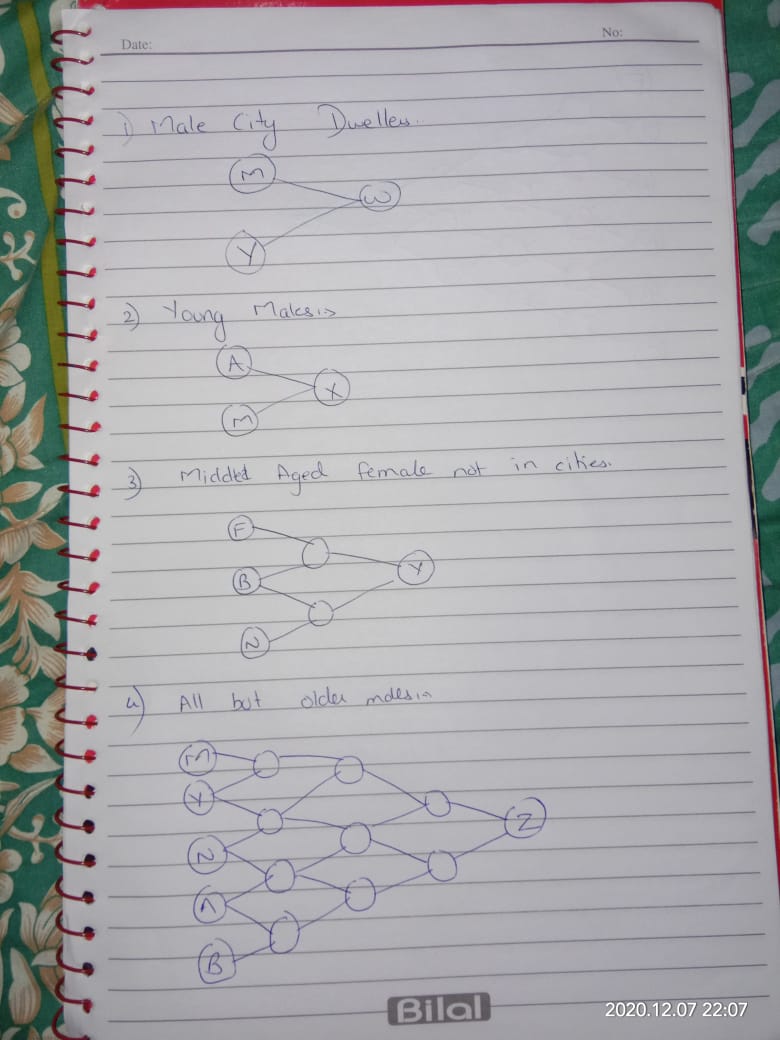 Date:
No:
1) Male City Dwellers.
M
W
Y
2) Young Males:->
A
X
M
3) Middled Aged female not in cities.
F
B
Y
N
4) All but older males:-
M
Y
N
Z
A
B
Bilal
2020.12.07 22:07